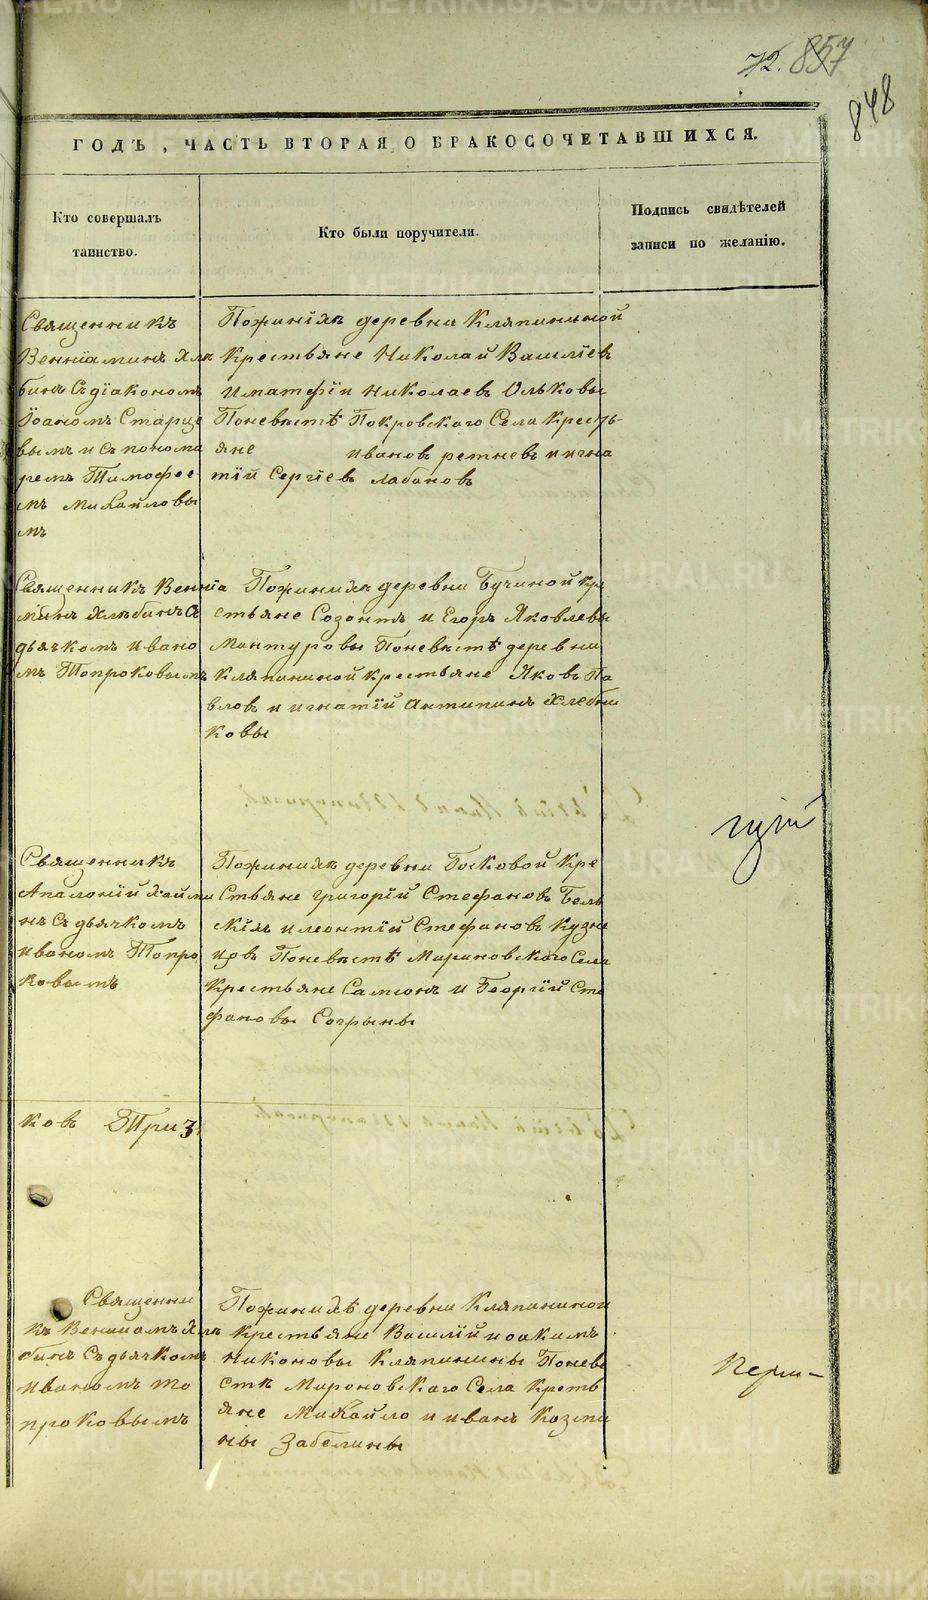 72. 857
848
ГОДЪ, ЧАСТЬ ВТОРАЯ, О БРАКОСОЧЕТАВШИХСЯ.
Кто совершалъ
таинство.
Кто были поручители.
Подпись свидѣтелей
записи по желанію.
Священникъ
Венніаминъ Хлѣ
бинъ Съ діакономъ
Іоаномъ Старце
вымъ и съ понома
ремъ Тимофее
мъ Михайловы
мъ
Пожинихѣ деревни Кляпининой
Крестьяне Николай Василіев
и матфіи Николаев Ольковы
Поневѣстѣ Покровскаго Села Кресть-
яне ивановъ ретневъ и игна
тій Сергіевъ лабановъ
Священникъ Венніа
минъ Хлѣбинъ Съ
дьячкомъ ивано
мъ Топроковымъ
Пожинихѣ деревни Бучиной кре
стьяне Созонтъ и Егоръ Яковлевы
Мантуровы Поневѣстѣ деревни
Кляпининой крестьяне Яковъ Па
вловъ и игнатій Антипинъ Хлебни
ковы
гузій
Священникъ
Аполоній Хайми
нъ Съ дьячкомъ
иваномъ Топро
ковымъ
Пожинихѣ деревни Босковой Кре
Стьяне григорій Стефановъ Бель
скій и леонтій Стефановъ Кузне
цовъ Поневѣстѣ Мироновскаго Села
Крестьяне Самсонъ и Георгій Сте
фановы Согрыны
ковъ Три 3.
Священни
къ Веніиамъ Хлѣ
бинъ Съ дьячкомъ
иваномъ то
проковымъ
Пожинихѣ деревни Кляпининой
крестьяне Василій иоакимъ
Никоновы Кляпинины Поневе
стѣ Мироновскаго Села Кресть
яне Михайло и иванъ Козми
ны Забелины
Перм-
METRIKI.GASO-URAL.RU